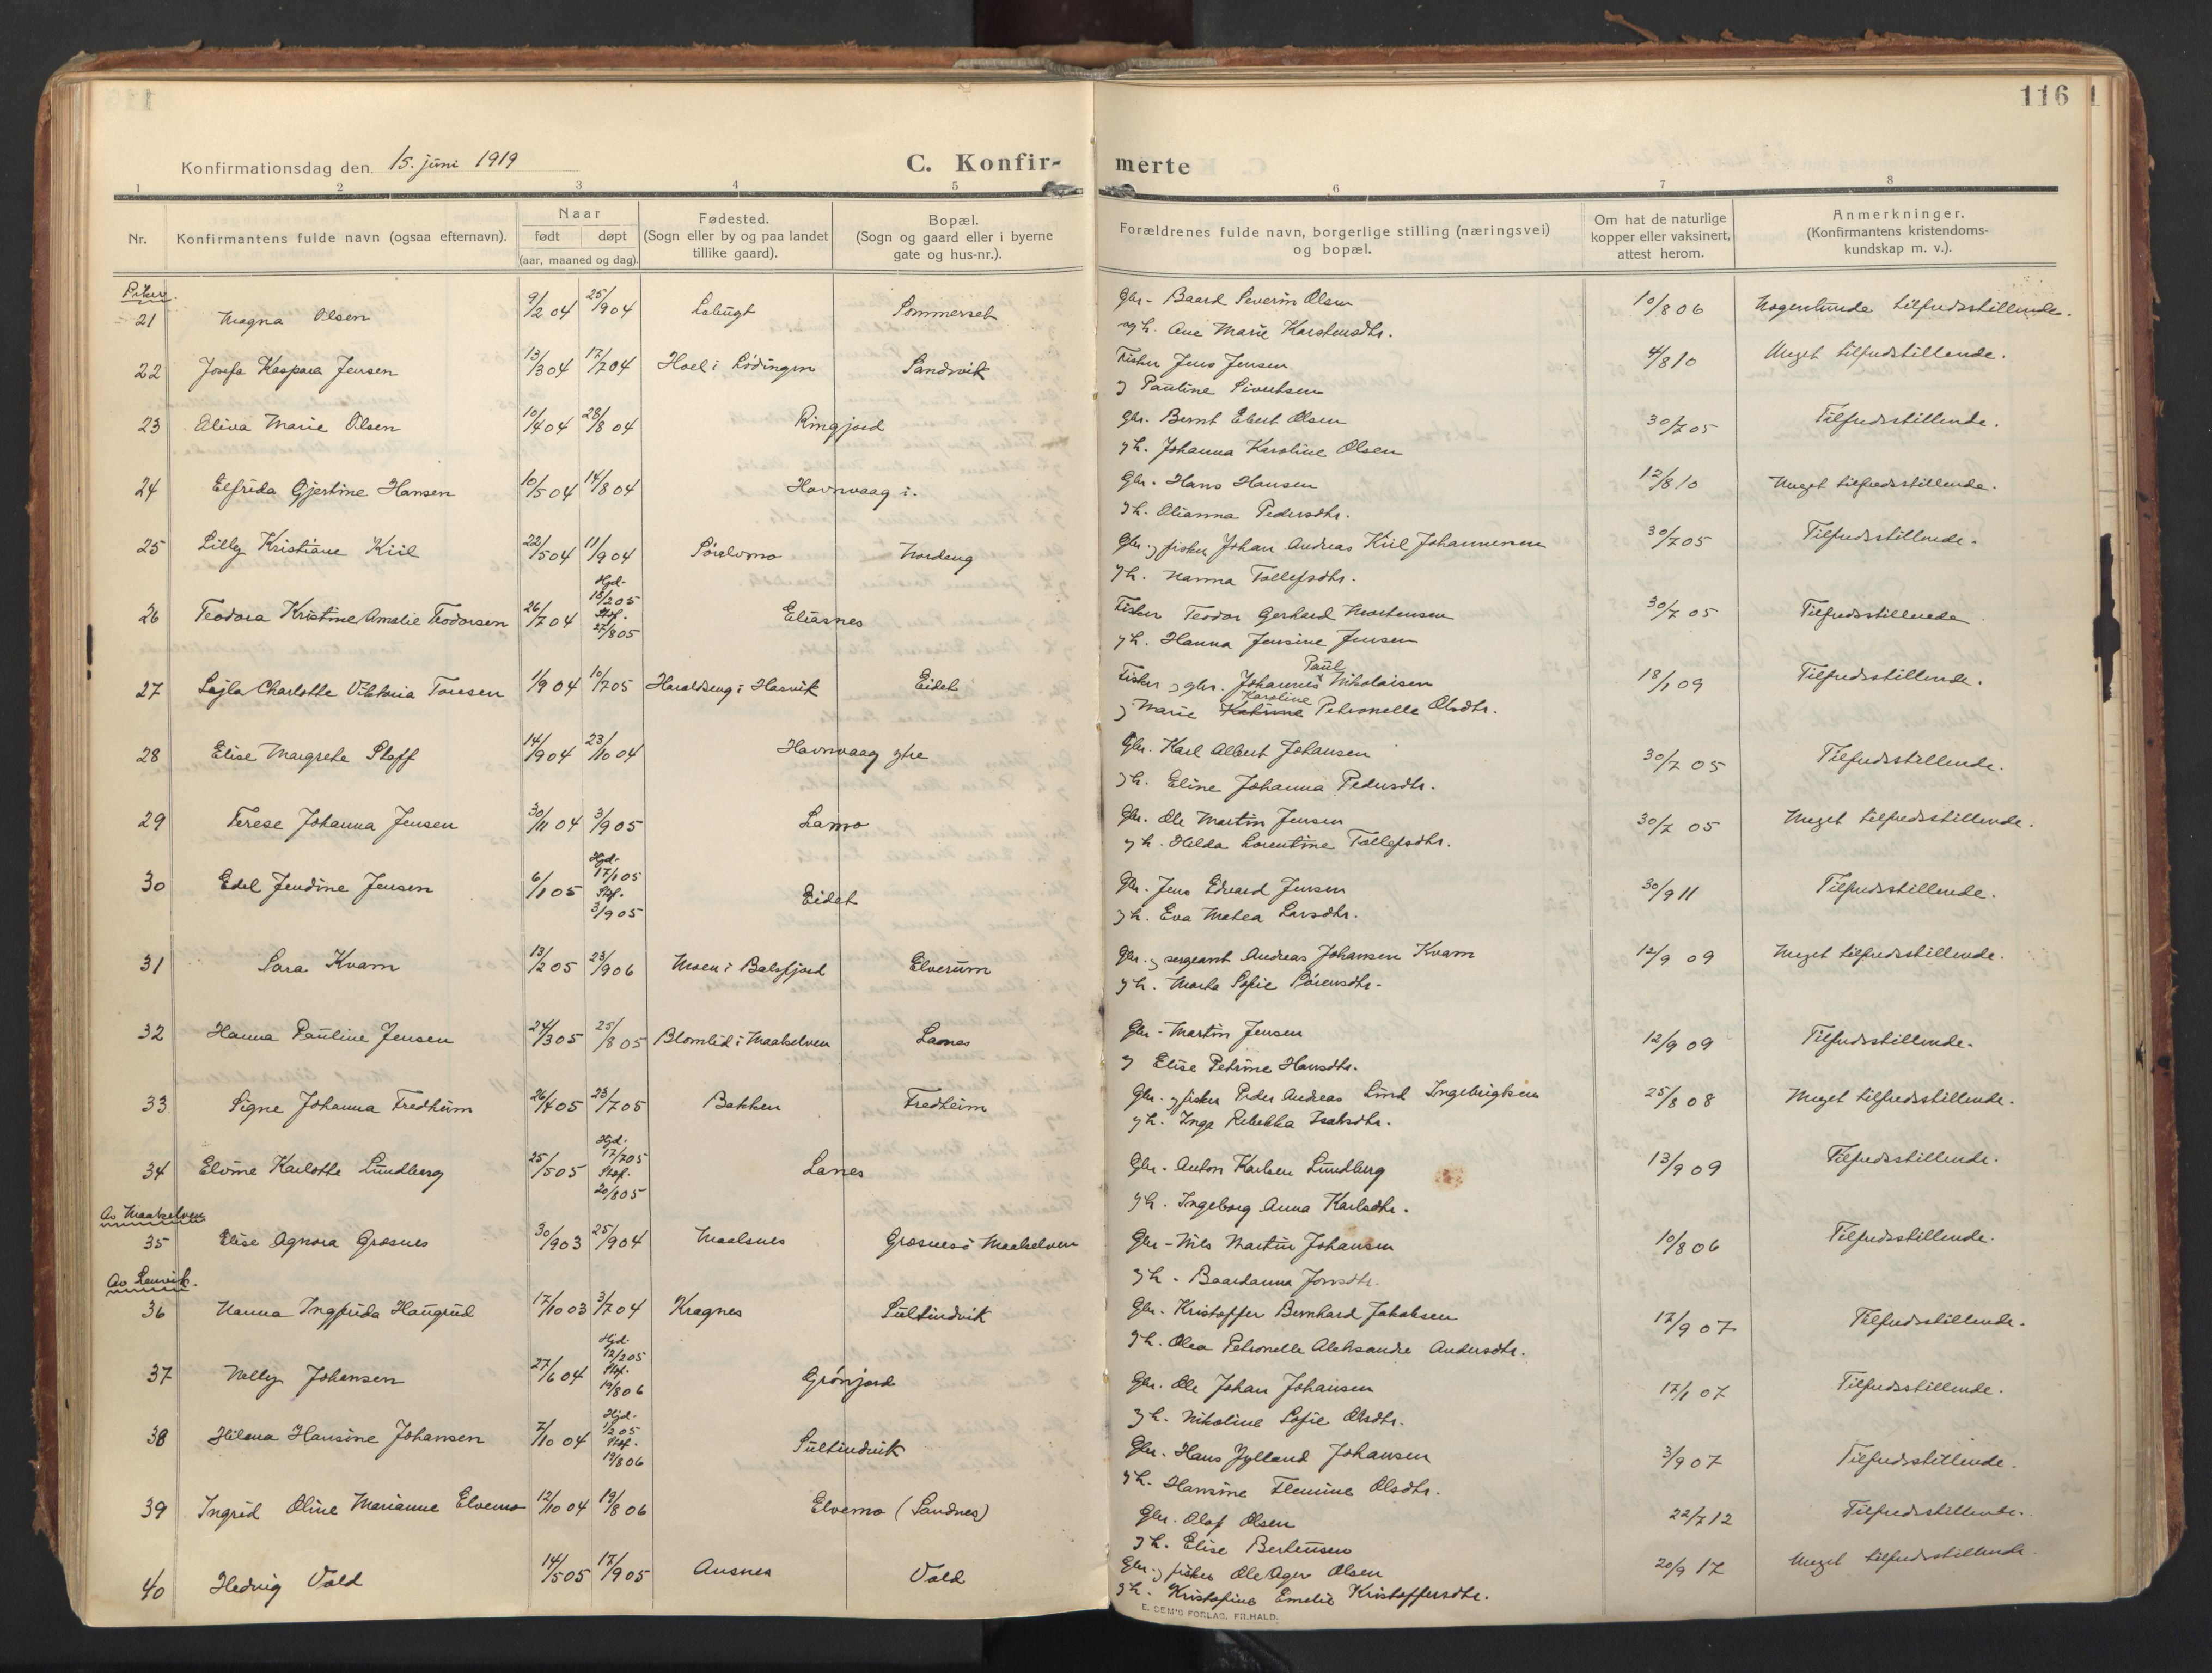 116
Konfirmationsdag den 15. juni 1919
C. Konfir-
merte
1 2 3 4 5 6 7 8
Nr.
Konfirmantens fulde navn (ogsaa efternavn).
Naar
født døpt
(aar, maaned og dag).
Fødested.
(Sogn eller by og paa landet
tillike gaard).
Bopæl.
(Sogn og gaard eller i byerne
gate og hus-nr.).
Forældrenes fulde navn, borgerlige stilling (næringsvei)
og bopæl.
Om hat de naturlige
kopper eller vaksinert,
attest herom.
Anmerkninger.
(Konfirmantens kristendoms-
kundskap m. v.).
Piker.
21 Magna Olsen 9/2 04 25/9 04 Sommerset Gbr. Baard Severin Olsen 10/8 06 Nogenlunde tilfredsstillende.
og h. Ane Marie Karstensdtr.
22 Josefa Kaspara Jensen 13/3 04 17/7 04 Hoel i Lødingen Sandvik Fisker Jens Jensen 4/8 10 Meget tilfredsstillende.
og Pauline Sivertsen
23 Oliva Marie Olsen 10/4 04 28/8 04 Ringjord Gbr. Bernt Ebert Olsen 30/7 05 Tilfredsstillende.
og h. Johanna Karoline Olsen
24 Elfrida Gjertine Hansen 10/5 04 14/8 04 Havnvaag i. Gbr. Hans Hansen 12/8 10 Meget tilfredsstillende.
og h. Olianna Pedersdtr.
25 Lilly Kristiane Kiil 22/5 04 11/9 04 Sørelvmo Nordeng Gbr. og fisker Johan Andreas Kiil Johannesen 30/7 05 Tilfredsstillende.
og h. Nanna Tollefsdtr.
26 Teodora Kristine Amalie Teodorsen 26/7 04 Hjd. 18/2 05 Stsf. 27/8 05 Eliasnes Fisker Teodor Gerhard Mortensen 30/7 05 Tilfredsstillende
og h. Hanna Jensine Jensen
27 Lajla Charlotte Viktoria Toresen 1/9 04 10/7 05 Haraldseng i Hasvik Eidet Fisker og gbr. Johannes Paul Nikolaisen 18/1 09 Tilfredsstillende.
og Marie Katrine Karoline Petronelle Olsdtr.
28 Elise Margrete Sloff 14/9 04 23/10 04 Havnvaag ytre Gbr. Karl Albert Johansen 30/7 05 Tilfredsstillende.
og h. Eline Johanna Pedersdtr.
29 Terese Johanna Jensen 30/11 04 3/9 05 Lamo Gbr. Ole Martin Jensen 30/7 05 Meget tilfredsstillende.
og h. Hilda Lorentine Tollefsdtr.
30 Edel Jendine Jensen 6/1 05 Hjd. 17/1 05 Stsf. 3/9 05 Eidet Gbr. Jens Edvard Jensen 30/9 11 Tilfredsstillende.
og h. Eva Matea Larsdtr.
31 Sara Kvam 13/2 05 23/9 06 Moen i Balsfjord Elverum Gbr. og sergeant Andreas Johansen Kvam 12/9 09 Meget tilfredsstillende.
og h. Marta Sofie Sørensdtr.
32 Hanna Pauline Jensen 24/3 05 25/8 05 Blomlid i Maalselven Laanes Gbr. Martin Jensen 12/9 09 Tilfredsstillende.
og Elise Petrine Hansdtr.
33 Signe Johanna Fredheim 26/4 05 23/7 05 Bakken Fredheim Gbr. og fisker Peder Andreas Lind Ingebrigtsen 25/8 08 Meget tilfredsstillende.
og h. Inga Rebekka Isaksdtr.
34 Elvine Karlotte Lundberg 25/5 05 Hjd. 17/7 05 Stsf. 20/8 05 Lanes Gbr. Anton Karlsen Lundberg 13/9 09 Tilfredsstillende.
og h. Ingeborg Anna Karlsdtr.
Av Maalselven
35 Elise Agnora Grosnes 30/9 03 25/9 04 Maalsnes Grosnes i Maalselven Gbr. Nils Martin Johansen 10/8 06 Tilfredsstillende.
og h. Baardanna Jonsdtr.
Av Lenvik.
36 Nanna Ingfrida Haugrud 17/10 03 3/7 04 Kragnes Sultindvik Gbr. Kristoffer Bernhard Jakobsen 17/9 07 Tilfredsstillende.
og h. Olea Petronelle Aleksandre Andersdtr.
37 Nelly Johansen 27/6 04 Hjd. 12/2 05 Stsf. 19/8 06 Grønjord Gbr. Ole Johan Johansen 17/1 07 Tilfredsstillende.
og h. Nikoline Sofie Olsdtr.
38 Hilma Hansine Johansen 7/10 04 Hjd. 1/2 05 Stsf. 19/8 06 Sultindvik Gbr. Hans Jylland Johansen 3/9 07 Tilfredsstillende.
og h. Hansine Flemine Olsdtr.
39 Ingrid Oline Marianne Elvemo 12/10 04 19/8 06 Elvemo (Sandnes) Gbr. Olaf Olsen 22/7 12 Tilfredsstillende.
og h. Elise Berteusen
40 Hedvig Vold 14/5 05 17/9 05 Ansnes Vold Gbr. og fisker Ole Ager Olsen 20/9 17 Meget tilfredsstillende.
og h. Kristofine Emelie Kristoffersdtr.
E. SEM'S FORLAG, FR.HALD.